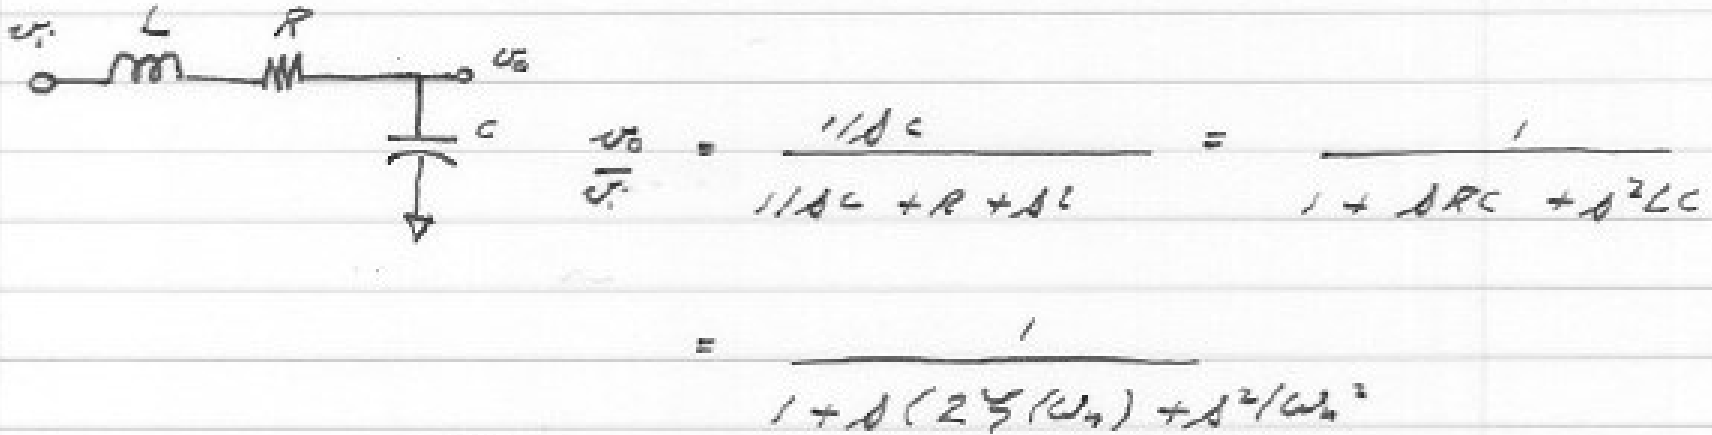 vᵢ L R v₀
C
v₀/vᵢ = (1/sC)/(1/sC + R + sL) = 1/(1 + sRC + s²LC)
= 1/(1 + s(2ζ/ωₙ) + s²/ωₙ²)